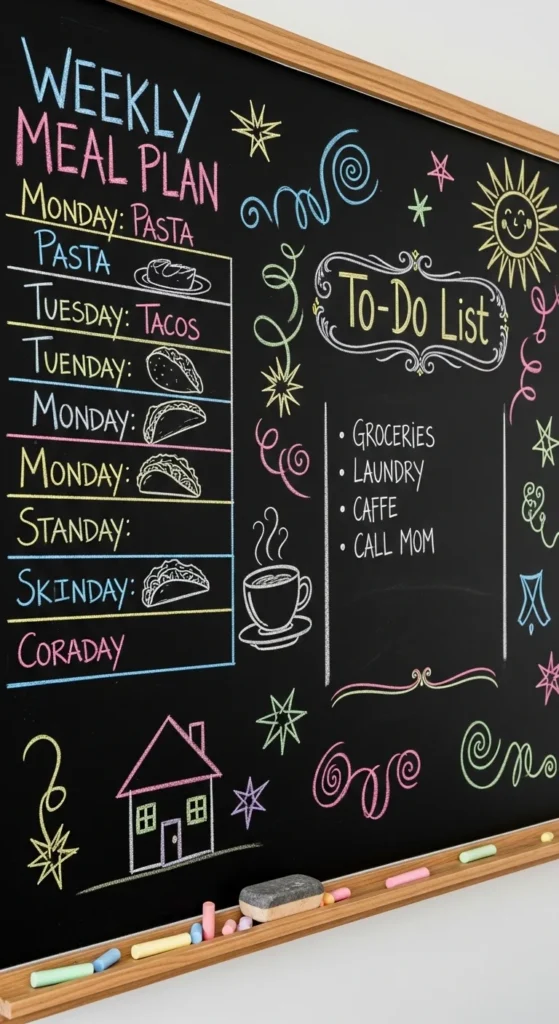 WEEKLY
MEAL PLAN
MONDAY: PASTA
PASTA
TUESDAY: TACOS
TUENDAY:
MONDAY:
MONDAY:
STANDAY:
SKINDAY:
CORADAY
To-Do List
• GROCERIES
• LAUNDRY
• CAFFE
• CALL MOM